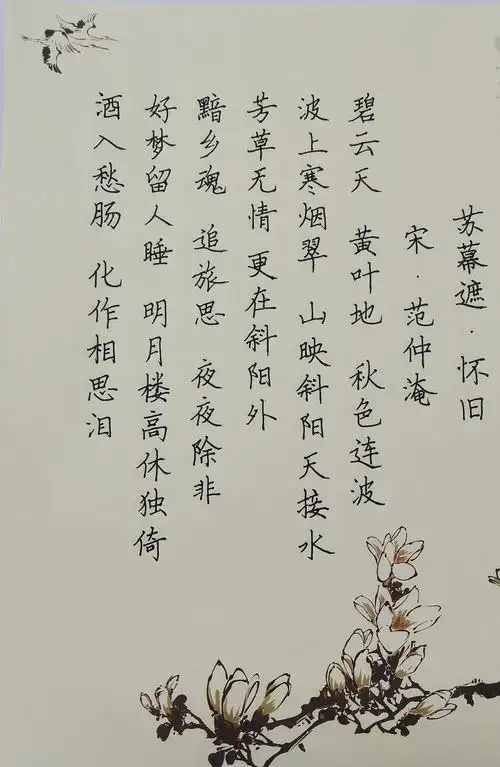 苏幕遮·怀旧
宋·范仲淹
碧云天 黄叶地 秋色连波
波上寒烟翠 山映斜阳天接水
芳草无情 更在斜阳外
黯乡魂 追旅思 夜夜除非
好梦留人睡 明月楼高休独倚
酒入愁肠 化作相思泪